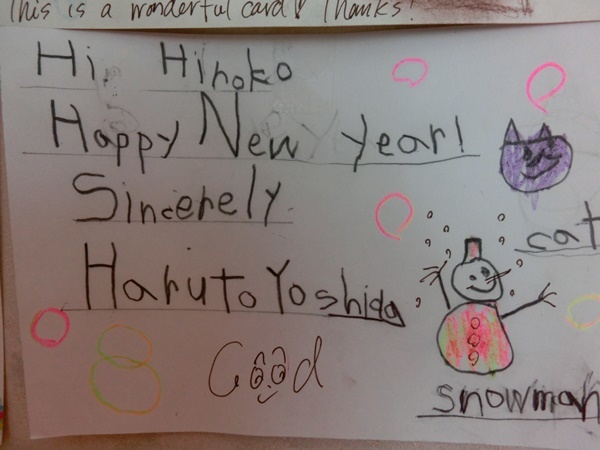 This is a wonderful card! Thanks!
Hi, Hiroko
Happy New year!
Sincerely
Haruto Yoshida
Good
cat
snowman